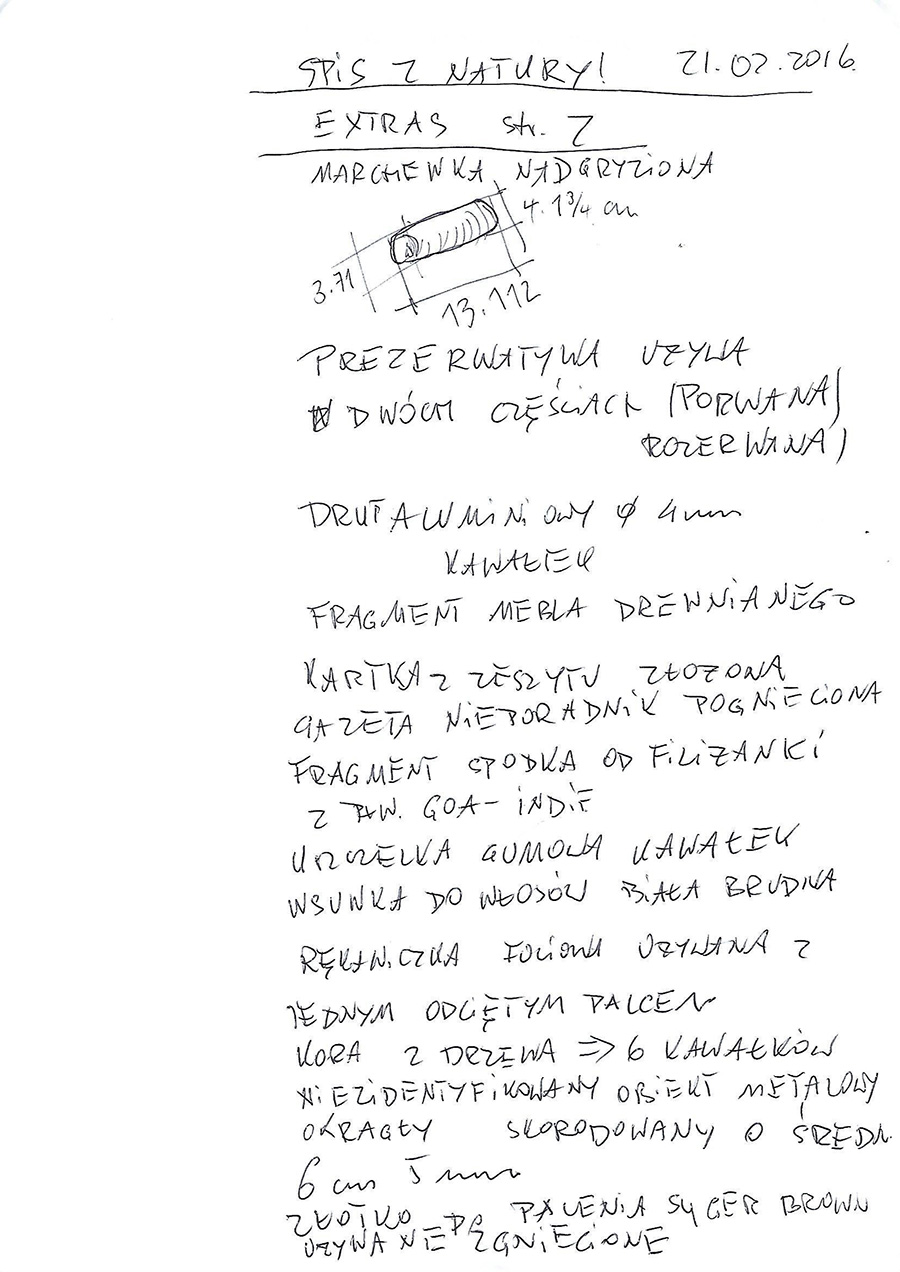 SPIS Z NATURY! 21.02.2016.
EXTRAS str. 2
MARCHEWKA NADGRYZIONA
4.1 3/4 cm
3.71
13.112
PREZERWATYWA UŻYWA
W DWÓCH CZĘŚCIACH (PORWANA)
ROZERWANA)
DRUT ALUMINIOWY φ 4mm
KAWAŁEK
FRAGMENT MEBLA DREWNIANEGO
KARTKA Z ZESZYTU ZŁOŻONA
GAZETA NIEPORADNIK POGNIECIONA
FRAGMENT SPODKA OD FILIZANKI
Z GOA - INDIE
USZCZELKA GUMOWA KAWAŁEK
WSUNKA DO WŁOSÓW BIAŁA BRUDNA
RĘKAWICZKA FOLIOWA UZYWANA Z
JEDNYM ODCIĘTYM PALCEM
KORA Z DRZEWA => 6 KAWAŁKÓW
NIEZIDENTYFIKOWANY OBIEKT METALOWY
OKRĄGŁY SKORODOWANY O ŚREDN.
6 cm 5 mm
ZŁOTKO DO PALENIA SUGER BROWN
UZYWANE ZGNIECIONE